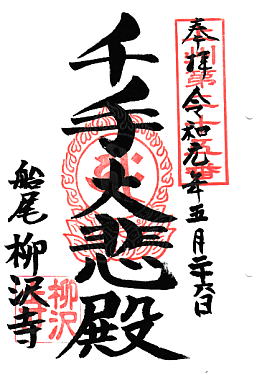 奉拝 令和元年五月二十六日
千手大悲殿
船尾 柳沢寺
柳沢